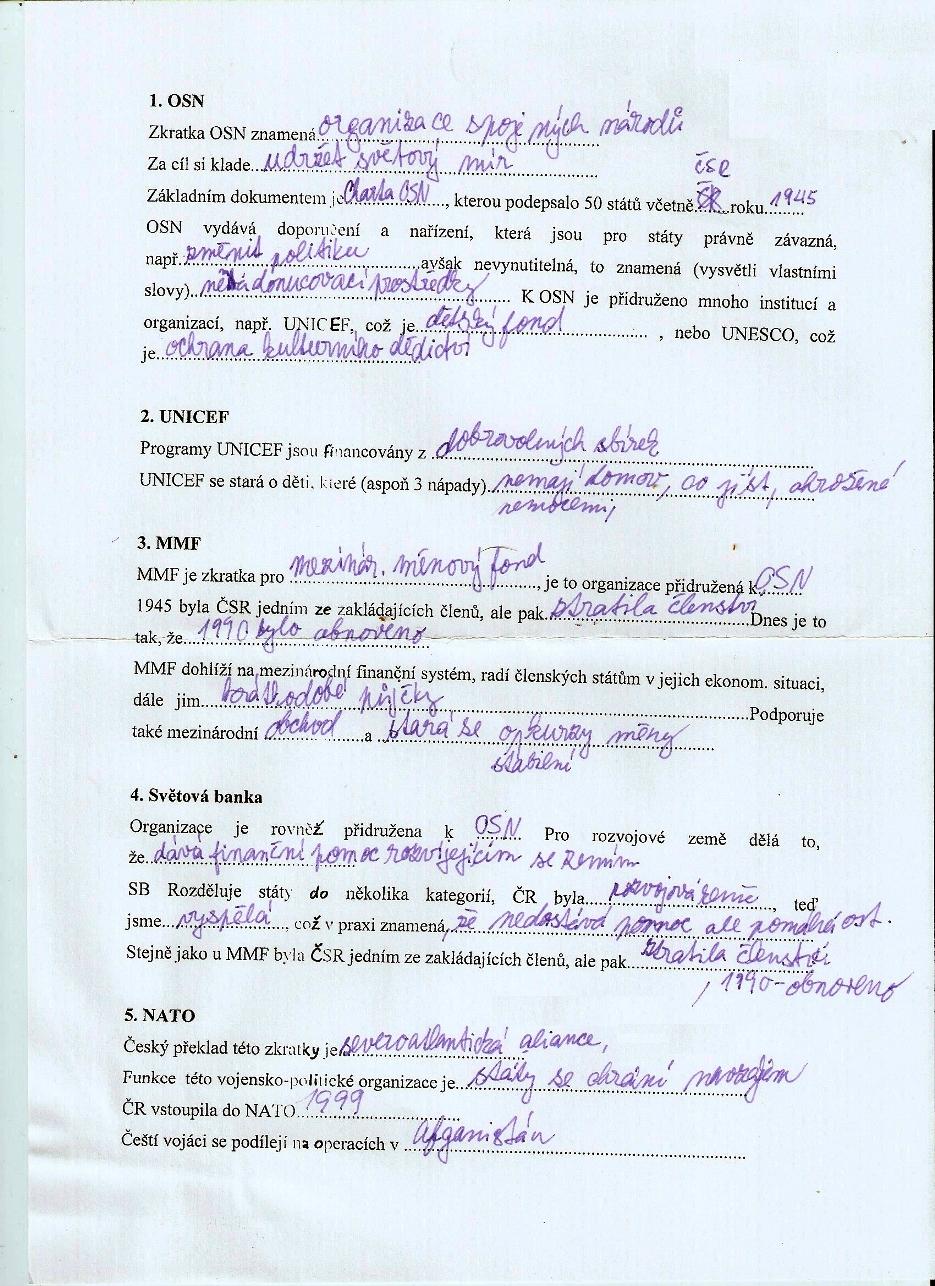 1. OSN
Zkratka OSN znamená organizace spojených národů
Za cíl si klade udržet světový mír
čSR
Základním dokumentem je Charta OSN, kterou podepsalo 50 států včetně roku 1945
OSN vydává doporučení a nařízení, která jsou pro státy právně závazná,
např. změnit politiku avšak nevynutitelná, to znamená (vysvětli vlastními
slovy) nemá donucovací prostředky K OSN je přidruženo mnoho institucí a
organizací, např. UNICEF, což je dětský fond , nebo UNESCO, což
je ochrana kulturního dědictví
2. UNICEF
Programy UNICEF jsou financovány z dobrovolných sbírek
UNICEF se stará o děti, které (aspoň 3 nápady) nemají domov, co jíst, ohrožené
nemocemi,
3. MMF
MMF je zkratka pro mezinár. měnový fond, je to organizace přidružená k OSN
1945 byla ČSR jedním ze zakládajících členů, ale pak ztratila členství Dnes je to
tak, že 1990 bylo obnoveno
MMF dohlíží na mezinárodní finanční systém, radí členských státům v jejich ekonom. situaci,
dále jim krátkodobé půjčky Podporuje
také mezinárodní obchod a stará se o kurzy měny
stabilní
4. Světová banka
Organizace je rovněž přidružena k OSN Pro rozvojové země dělá to,
že dává finanční pomoc rozvíjejícím se zemím
SB Rozděluje státy do několika kategorií, ČR byla rozvojová země, teď
jsme vyspělá, což v praxi znamená, že nedostává pomoc ale pomáhá ost.
Stejně jako u MMF byla ČSR jedním ze zakládajících členů, ale pak ztratila členství
, 1990-obnoveno
5. NATO
Český překlad této zkratky je severoatlantická aliance,
Funkce této vojensko-politické organizace je státy se chrání navzájem
ČR vstoupila do NATO 1999
Čeští vojáci se podílejí na operacích v Afganistán